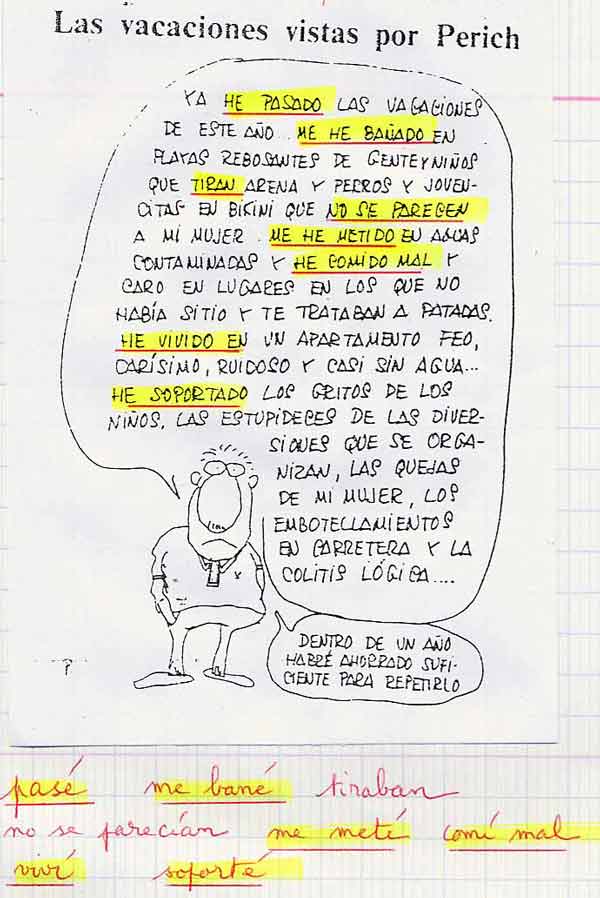 Las vacaciones vistas por Perich
YA HE PASADO LAS VACACIONES
DE ESTE AÑO. ME HE BAÑADO EN
PLAYAS REBOSANTES DE GENTE Y NIÑOS
QUE TIRAN ARENA Y PERROS Y JOVEN-
CITAS EN BIKINI QUE NO SE PARECEN
A MI MUJER. ME HE METIDO EN AGUAS
CONTAMINADAS Y HE COMIDO MAL Y
CARO EN LUGARES EN LOS QUE NO
HABÍA SITIO Y TE TRATABAN A PATADAS.
HE VIVIDO EN UN APARTAMENTO FEO,
CARÍSIMO, RUIDOSO Y CASI SIN AGUA...
HE SOPORTADO LOS GRITOS DE LOS
NIÑOS, LAS ESTUPIDECES DE LAS DIVER-
SIONES QUE SE ORGA-
NIZAN, LAS QUEJAS
DE MI MUJER, LOS
EMBOTELLAMIENTOS
EN CARRETERA Y LA
COLITIS LÓGICA....
DENTRO DE UN AÑO
HABRÉ AHORRADO SUFI-
CIENTE PARA REPETIRLO
P
pasé me bané tiraban
no se parecían me meté comí mal
viví soporté